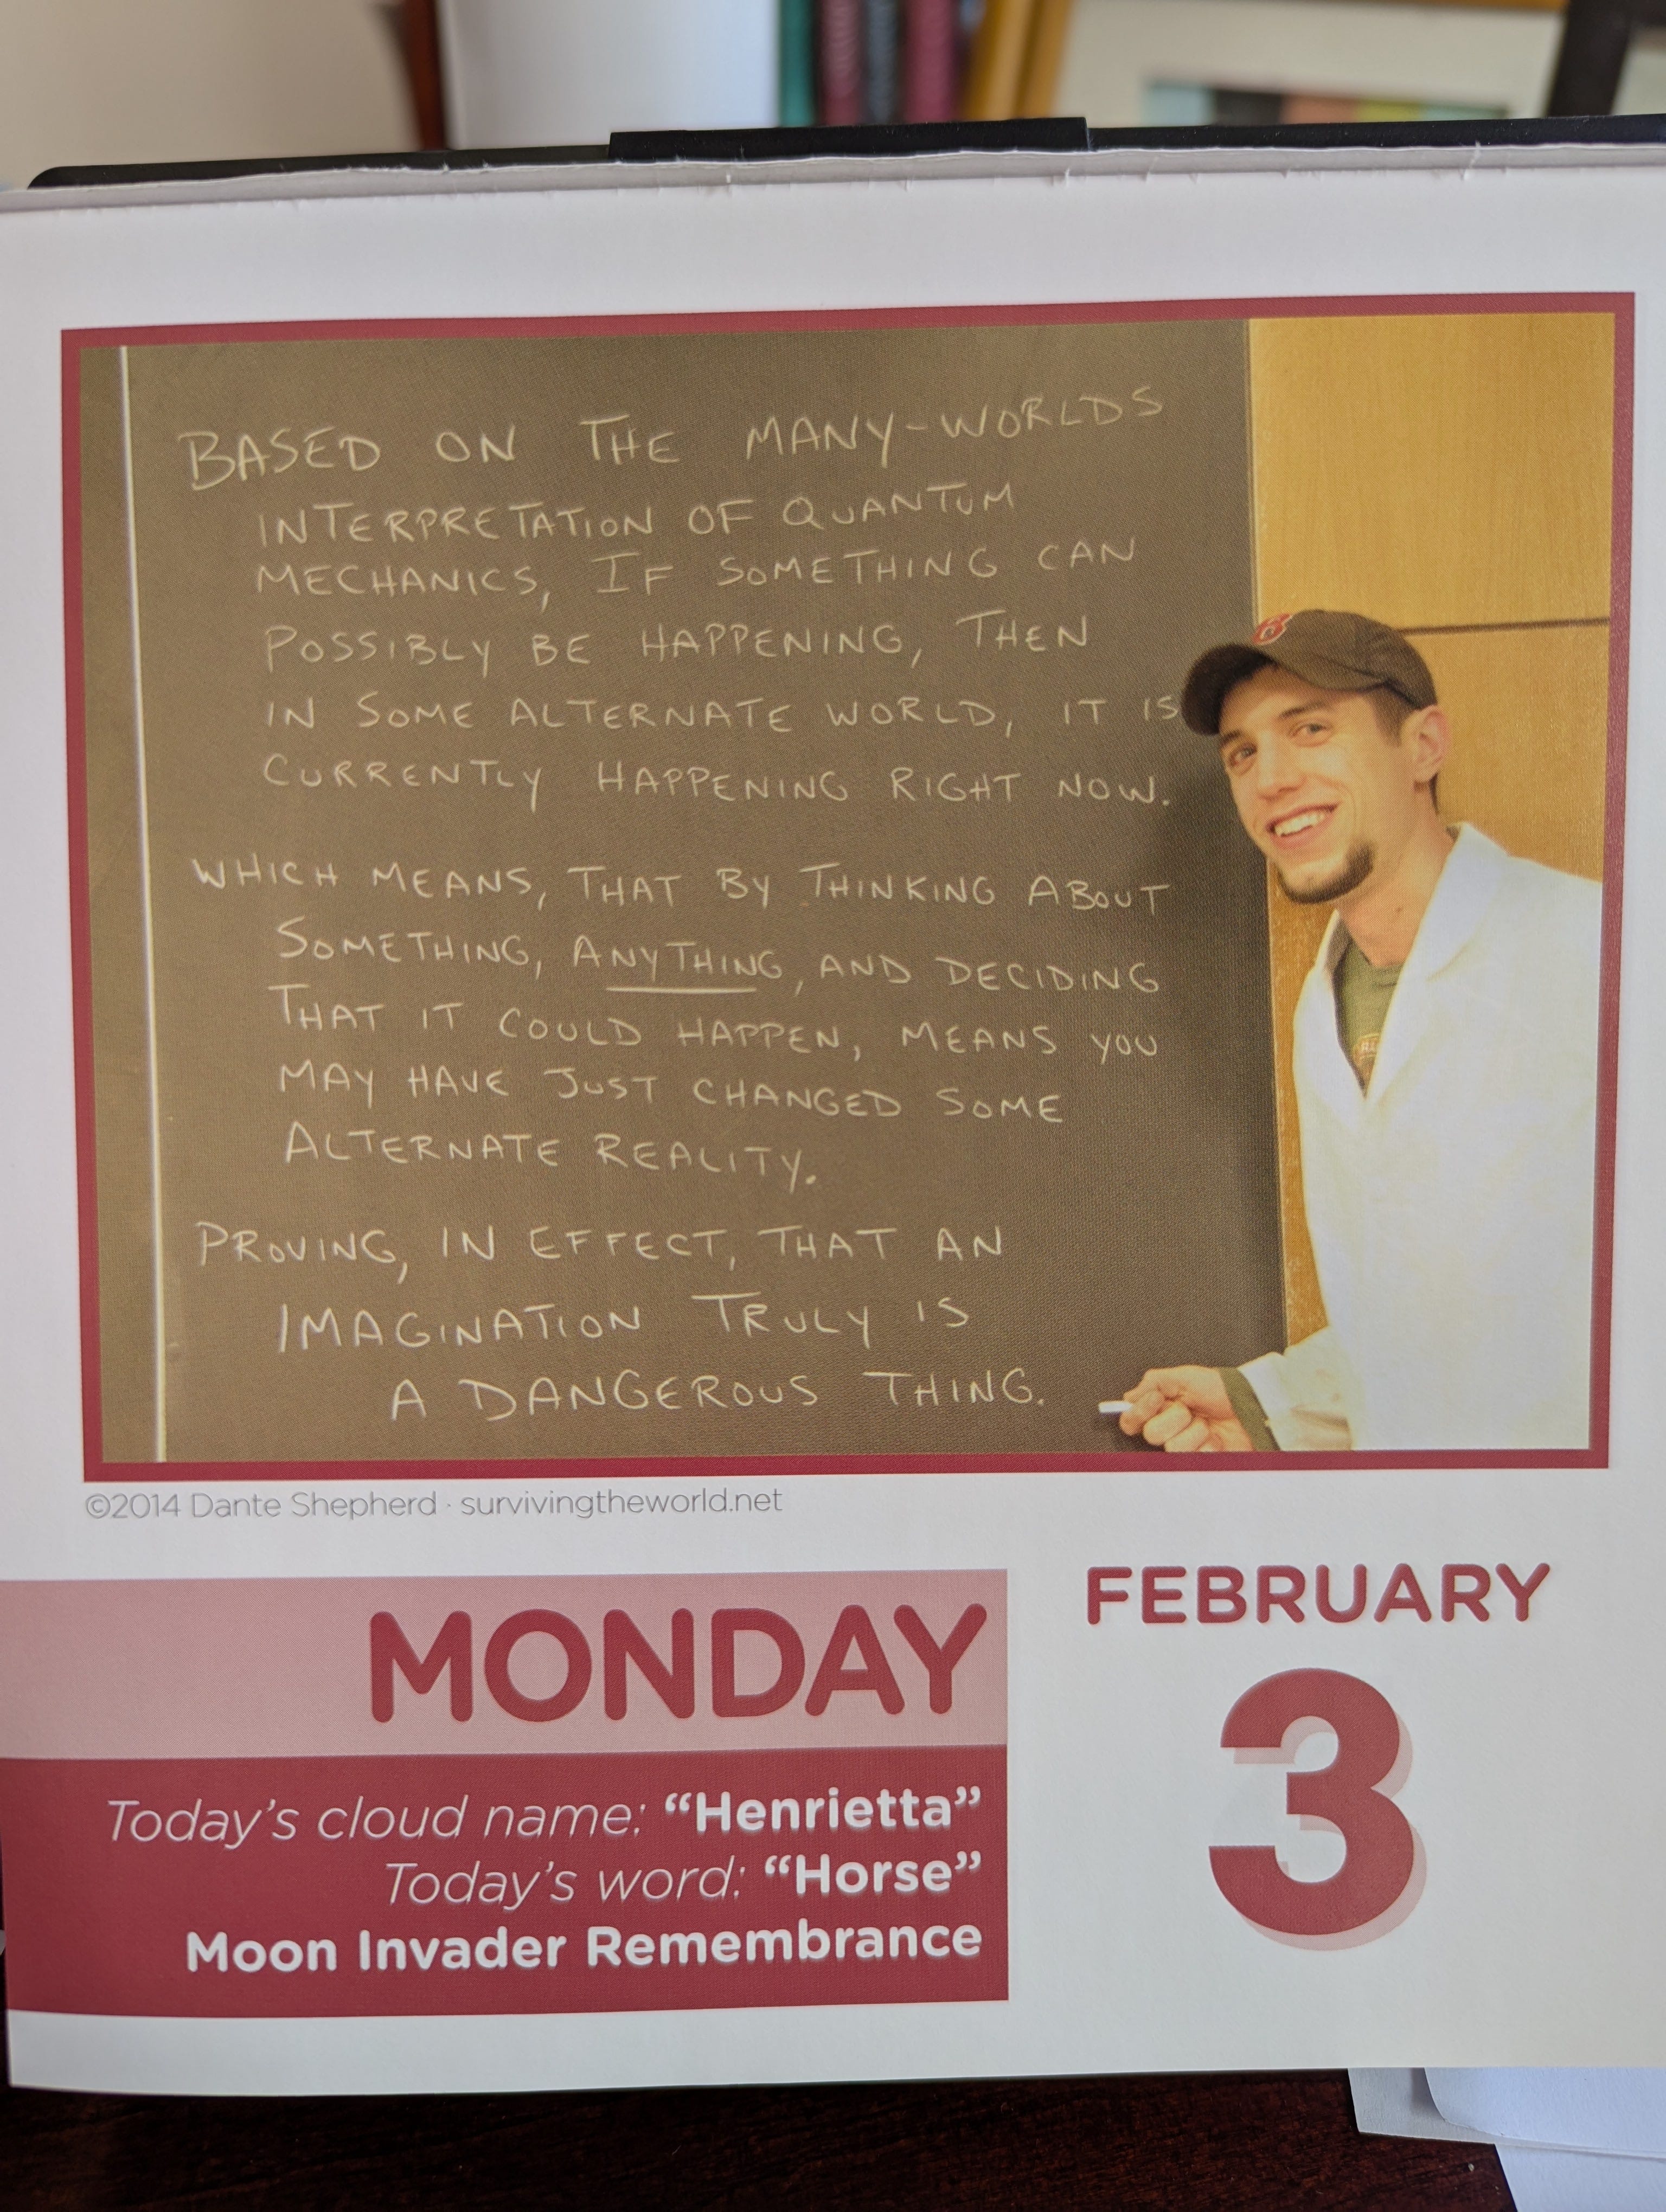 BASED ON THE MANY-WORLDS
INTERPRETATION OF QUANTUM
MECHANICS, IF SOMETHING CAN
POSSIBLY BE HAPPENING, THEN
IN SOME ALTERNATE WORLD, IT IS
CURRENTLY HAPPENING RIGHT NOW.
WHICH MEANS, THAT BY THINKING ABOUT
SOMETHING, ANYTHING, AND DECIDING
THAT IT COULD HAPPEN, MEANS YOU
MAY HAVE JUST CHANGED SOME
ALTERNATE REALITY.
PROVING, IN EFFECT, THAT AN
IMAGINATION TRULY IS
A DANGEROUS THING.
©2014 Dante Shepherd · survivingtheworld.net
MONDAY
FEBRUARY
3
Today's cloud name: “Henrietta”
Today's word: “Horse”
Moon Invader Remembrance